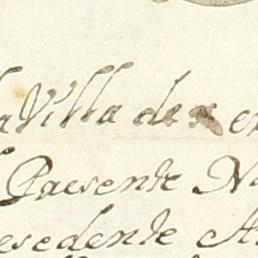 la Villa de
Presente No
esedente A